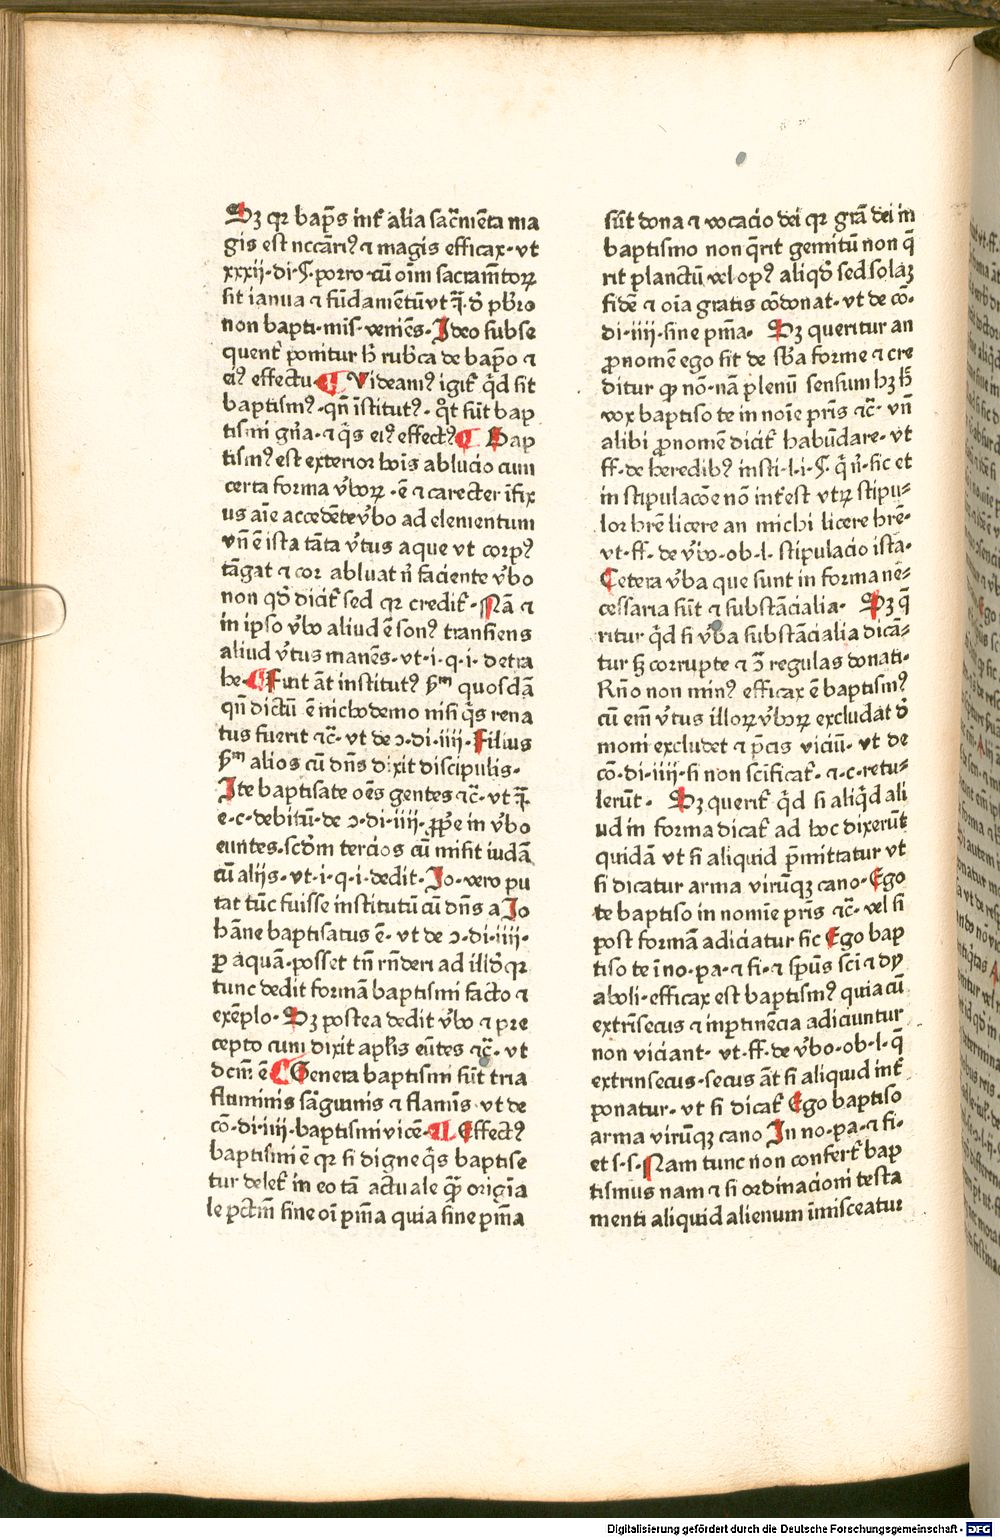 Sꝫ qꝛ bap̄s inť alia sac̄mēta ma
gis est nccāriꝰ ⁊ magis efficax · vt
xxxii · di · § · porro · cū oīm sacram̄toꝝ
sit ianua ⁊ fūdamētū vt
non bapti · mis · veniēs · Ideo subse
quenť ponitur h̄ rub̾ca de bap̄o ⁊
eiꝰ effectu · ¶ Videamꝰ igiť qͥd sit
baptismꝰ · qn̄ īstitutꝰ · qͦt sūt bap
tismi gn̄a · ⁊ qͥs eiꝰ effectꝰ ¶ Bap
tismꝰ est exterior hoīs ablucio cum
certa forma v̾boꝝ · ē ⁊ carecter īfix
us aīe accedēte v̾bo ad elementum
vn̄ ē ista tāta v̾tus aque vt corpꝰ
tāgat ⁊ cor abluat n̄ faciente v̾bo
non qꝺ̾ diciť sed qꝛ crediť · Nā ⁊
in ipso v̾bo aliud ē sonꝰ transiens
aliud v̾tus manēs · vt · i · q · i · detra
he · ¶ Fuit āt institutꝰ ẜm quosdā
qn̄ dictū ē nichodemo nisi qͥs rena
tus fuerit ⁊c̄ · vt de ↄ · di · iiii · Filius
ẜm alios cū dn̄s dixit discipulis ·
Ite baptisate oēs gentes ⁊c̄ · vt
e · c · debitū · de ↄ · di · iiii · ꝓp̄e in v̾bo
euntes · scd̾m tercios cū misit iudā
cū alijs · vt · i · q · i · dedit · Io · vero pu
tat tūc fuisse institutū cū dn̄s a Io
hāne baptisatus ē · vt de ↄ · di · iiii ·
ꝑ aquā · posset tn̄ rn̄deri ad illd̾ qꝛ
tunc dedit formā baptismi facto ⁊
exēplo · Sꝫ postea dedit v̾bo ⁊ pre
cepto cum dixit apl̾is eūtes ⁊c̄ · vt
dcm̄ ē ¶ Genera baptismi sūt tria
fluminis sāguinis ⁊ flamīs · vt de
cō · di · iiii · baptismi vicē · ¶ Effectꝰ
baptismi ē qꝛ si digne qͥs baptise
tur deleť in eo tā actuale q̄ꝫ origīa
le pctm̄ sine oī pn̄ia quia sine pn̄ia
sūt dona ⁊ vocacio dei qꝛ grā dei in
baptismo non q̄rit gemitū non q̄
rit planctū vel opꝰ aliqd̾ sed solaꝫ
fidē ⁊ oīa gratis cōdonat · vt de cō ·
di · iiii · sine pn̄ia · Sꝫ queritur an
ꝓnomē ego sit de sb̾a forme ⁊ cre
ditur ꝙ nō · nā plenū sensum hꝫ h̄
vox baptiso te in noīe pr̄is ⁊c̄ · vn̄
alibi ꝓnomē diciť habūdare · vt
ff · de heredibꝰ insti · l · i · § · q̄ n̄ · sic et
in stipulacōe nō inťest vtꝝ stipu⸗
lor hr̄e licere an michi licere hr̄e ·
vt · ff · de v̾bo · ob · l · stipulacio ista ·
Cetera v̾ba que sunt in forma ne⸗
cessaria sūt ⁊ substācialia · Sꝫ q̄
ritur qͥd si v̾ba substācialia dicā⸗
tur sꝫ corrupte ⁊ ↄ̄ regulas donati ·
Rn̄o non minꝰ efficax ē baptismꝰ
cū em̄ v̾tus illoꝝ v̾boꝝ excludat d̾
moni excludet ⁊ p̄cis viciū · vt de
cō · di · iiii · si non sc̄ificať · ⁊ · c · retu⸗
lerūt · Sꝫ queriť qͥd si aliqͥd ali
ud in forma dicať ad hoc dixerūt
quidā vt si aliquid p̄mittatur vt
si dicatur arma virūqꝫ cano · Ego
te baptiso in nomīe pr̄is ⁊c̄ · vel si
post formā adiciatur sic Ego bap
tiso te ī no · pa · ⁊ fi · ⁊ sp̄us scī ⁊ dy
aboli · efficax est baptismꝰ quia cū
extrīsecus ⁊ inp̱tinēcia adiciuntur
non viciant · vt · ff · de v̾bo · ob · l · q̄
extrinsecus · secus āt si aliquid inť
ponatur · vt si dicať Ego baptiso
arma virūqꝫ cano In no · pa · ⁊ fi ·
et s · s · Nam tunc non conferť bap
tismus nam ⁊ si ordinacioni testa
menti aliquid alienum īmisceatur
Digitalisierung gefördert durch die Deutsche Forschungsgemeinschaft - DFG